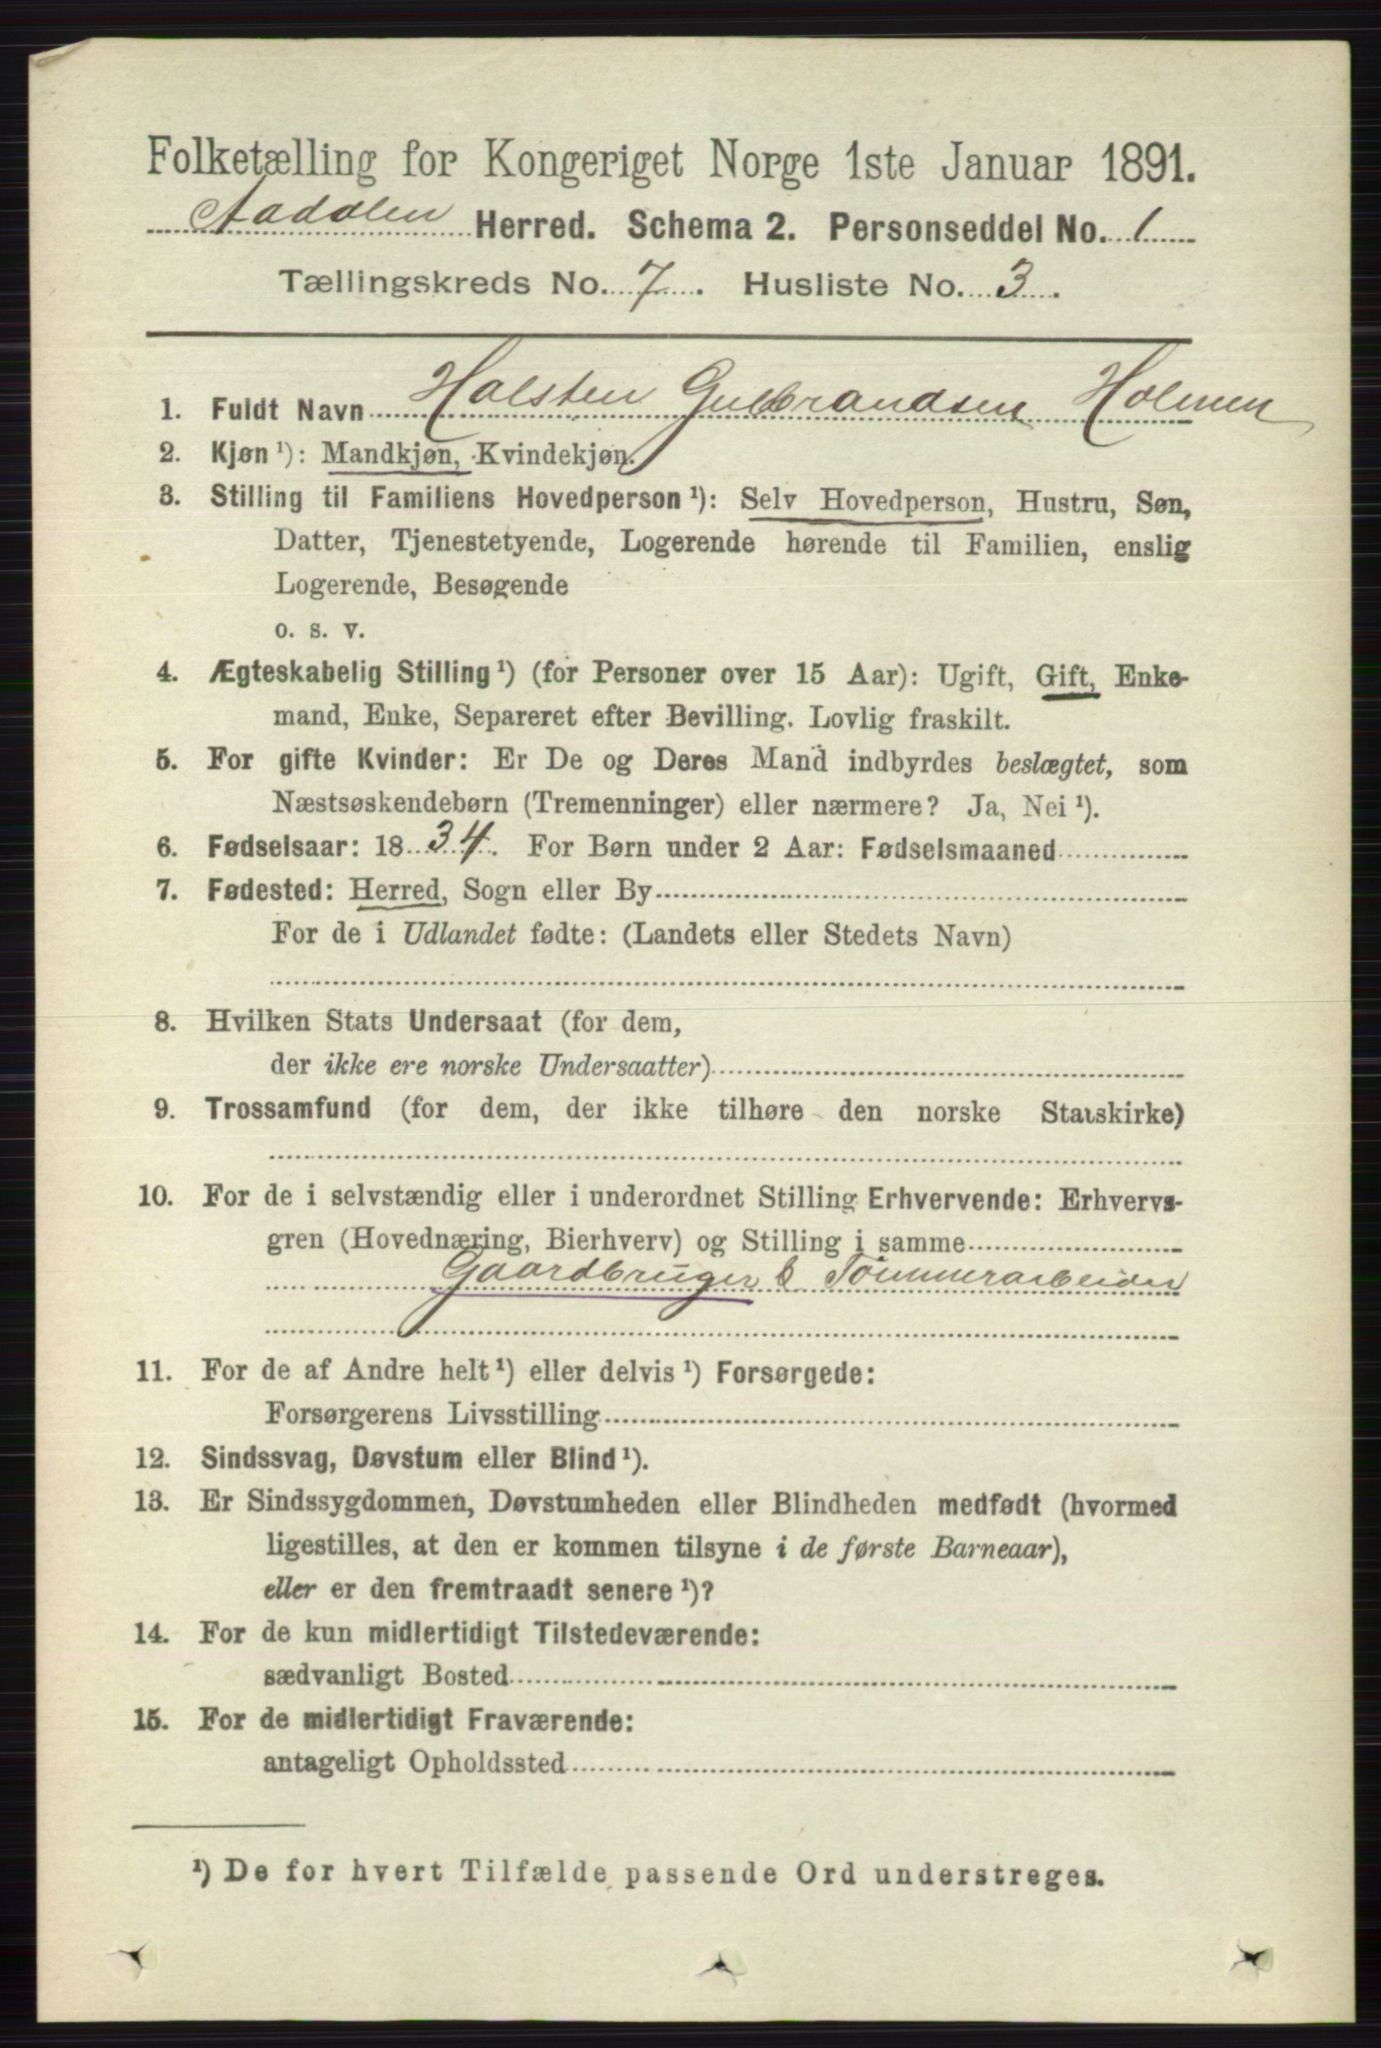 Folketælling for Kongeriget Norge 1ste Januar 1891.
Aadalen Herred. Schema 2. Personseddel No. 1
Tællingskreds No. 7. Husliste No. 3.
1. Fuldt Navn Halsten Gulbrandsen Holmen
2. Kjøn ¹): Mandkjøn, Kvindekjøn.
3. Stilling til Familiens Hovedperson ¹): Selv Hovedperson, Hustru, Søn,
Datter, Tjenestetyende, Logerende hørende til Familien, enslig
Logerende, Besøgende
o. s. v.
4. Ægteskabelig Stilling ¹) (for Personer over 15 Aar): Ugift, Gift, Enke-
mand, Enke, Separeret efter Bevilling. Lovlig fraskilt.
5. For gifte Kvinder: Er De og Deres Mand indbyrdes beslægtet, som
Næstsøskendebørn (Tremenninger) eller nærmere? Ja, Nei ¹).
6. Fødselsaar: 1834. For Børn under 2 Aar: Fødselsmaaned
7. Fødested: Herred, Sogn eller By
For de i Udlandet fødte: (Landets eller Stedets Navn)
8. Hvilken Stats Undersaat (for dem,
der ikke ere norske Undersaatter)
9. Trossamfund (for dem, der ikke tilhøre den norske Statskirke)
10. For de i selvstændig eller i underordnet Stilling Erhvervende: Erhvervs-
gren (Hovednæring, Bierhverv) og Stilling i samme
Gaardbruger & Tømmerarbeider
11. For de af Andre helt ¹) eller delvis ¹) Forsørgede:
Forsørgerens Livsstilling
12. Sindssvag, Døvstum eller Blind ¹).
13. Er Sindssygdommen, Døvstumheden eller Blindheden medfødt (hvormed
ligestilles, at den er kommen tilsyne i de første Barneaar),
eller er den fremtraadt senere ¹)?
14. For de kun midlertidigt Tilstedeværende:
sædvanligt Bosted
15. For de midlertidigt Fraværende:
antageligt Opholdssted
¹) De for hvert Tilfælde passende Ord understreges.